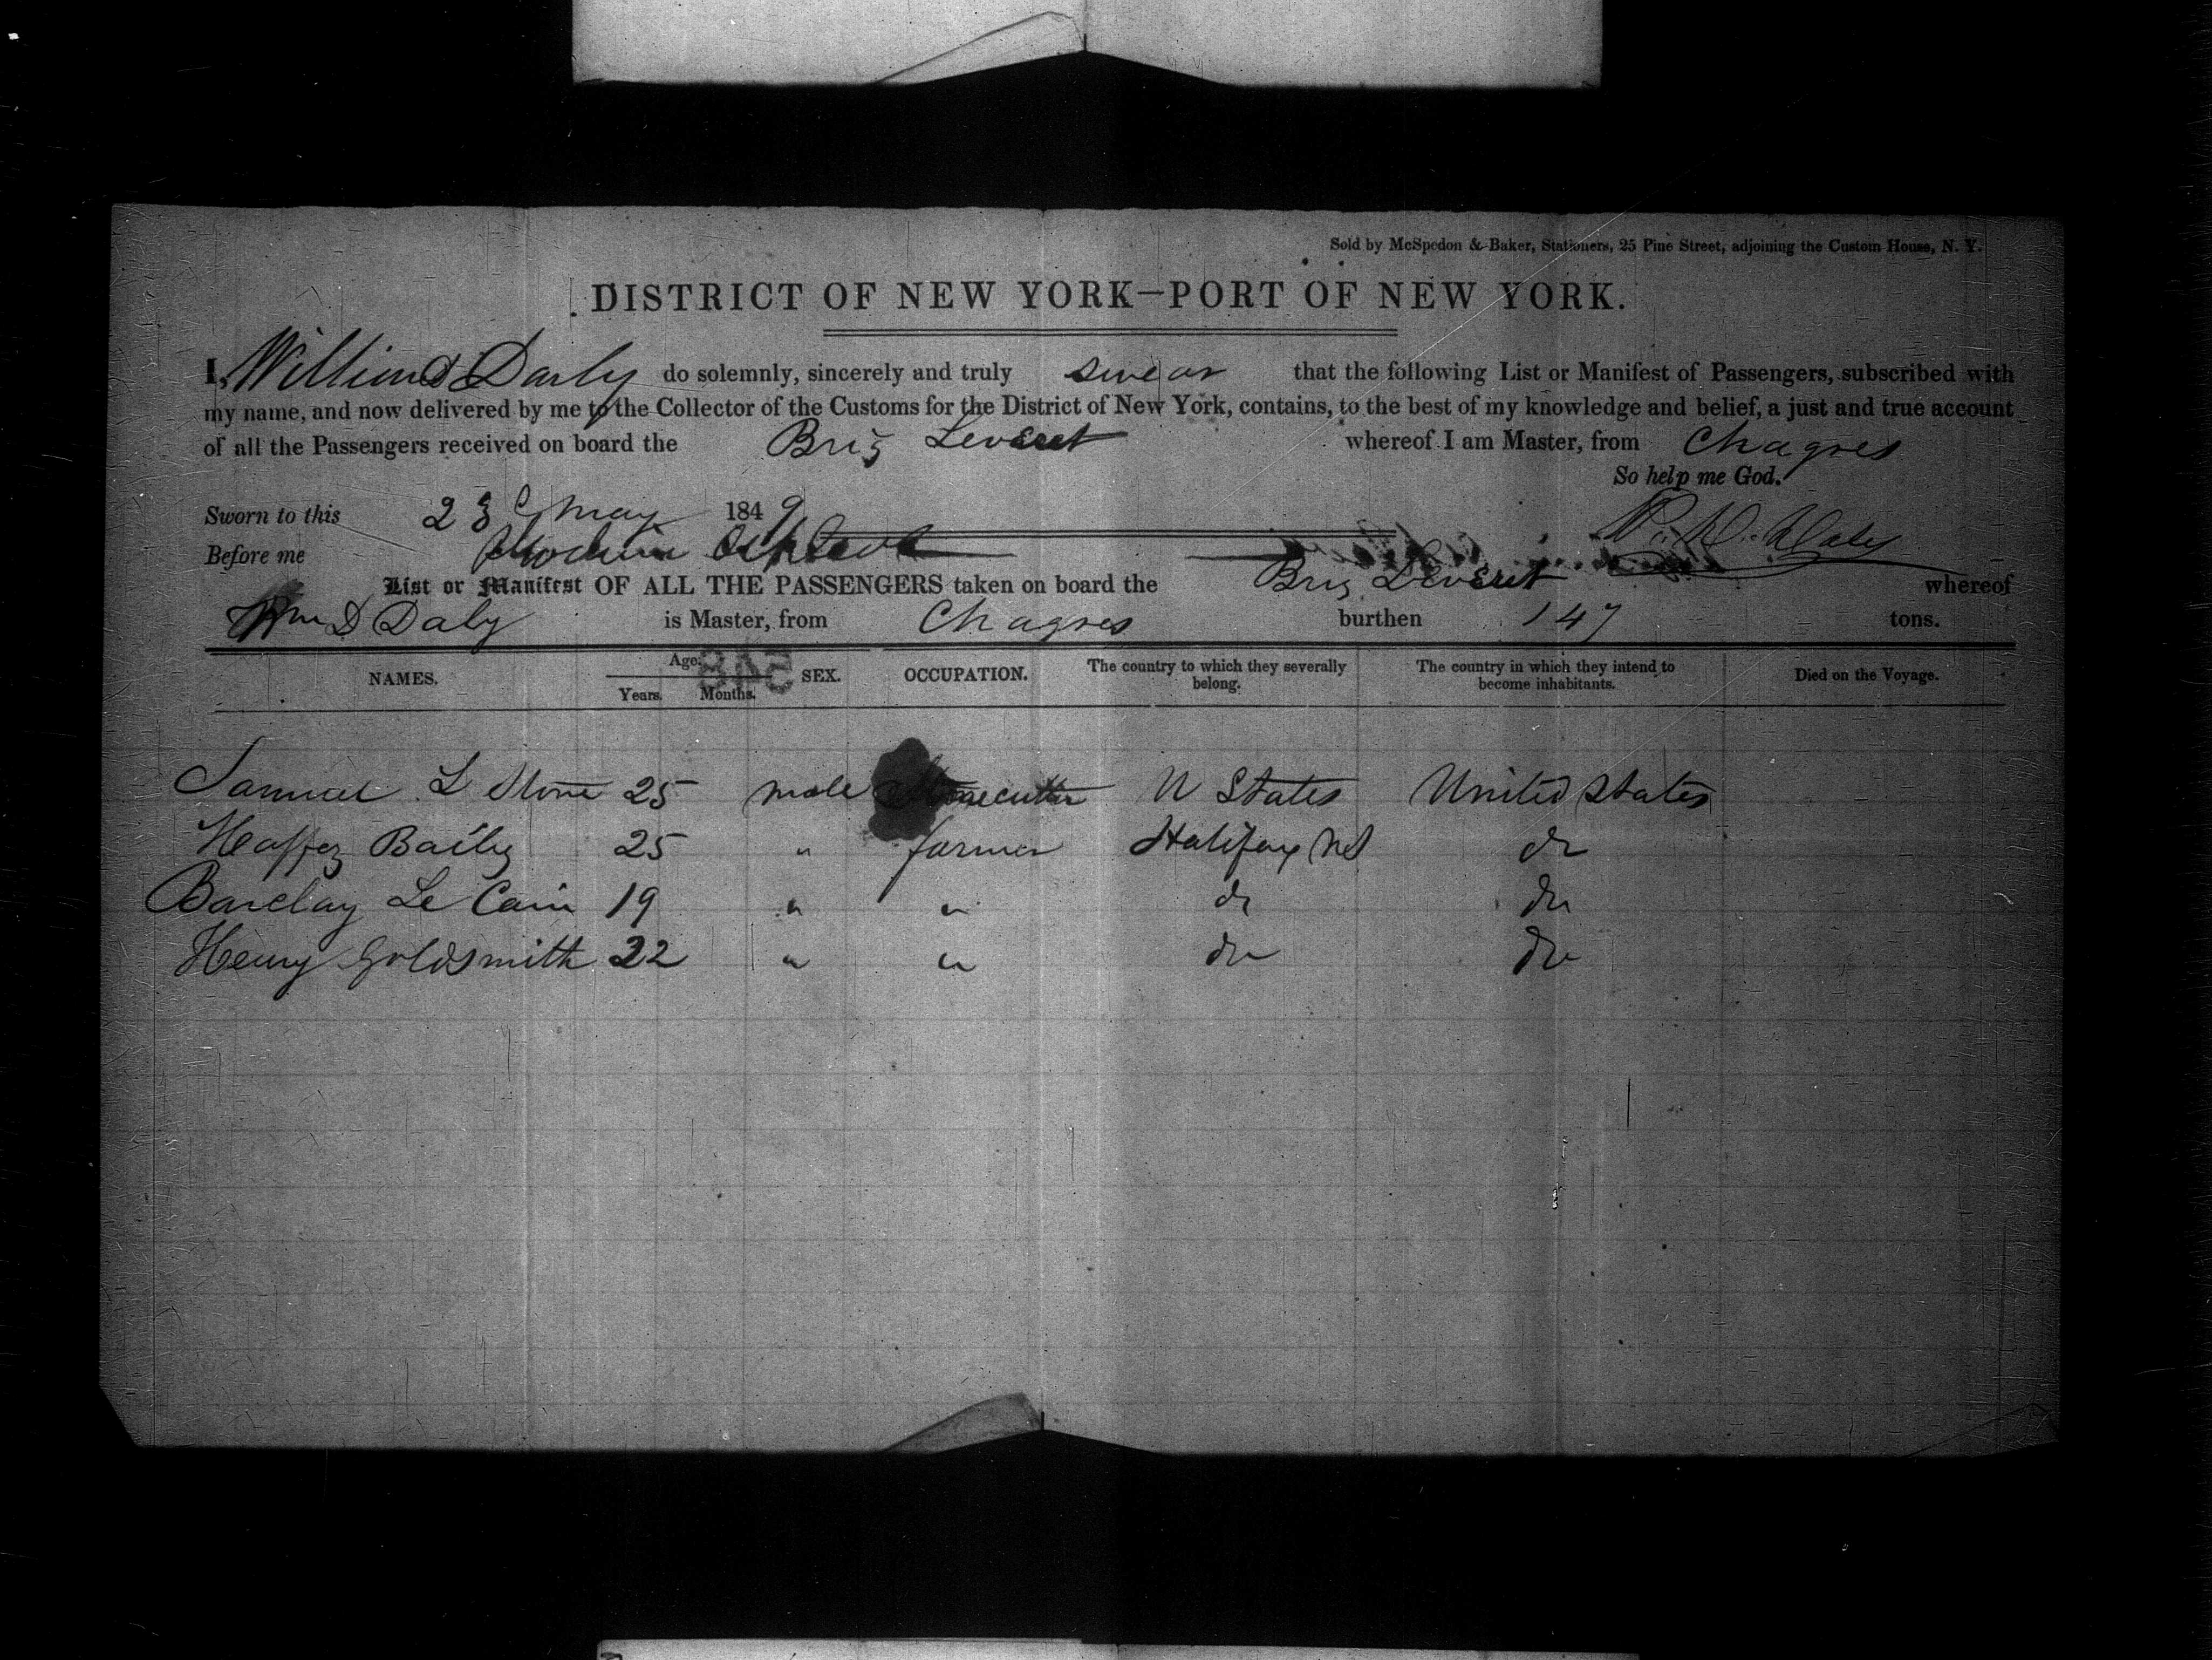 Sold by McSpedon & Baker, Stationers, 25 Pine Street, adjoining the Custom House, N. Y.
DISTRICT OF NEW YORK—PORT OF NEW YORK.
I, William D Darly do solemnly, sincerely and truly swear that the following List or Manifest of Passengers, subscribed with
my name, and now delivered by me to the Collector of the Customs for the District of New York, contains, to the best of my knowledge and belief, a just and true account
of all the Passengers received on board the Brig Leveret whereof I am Master, from Chagres
So help me God.
Sworn to this 23 May 1849 W. D. Daly
Before me
List or Manifest OF ALL THE PASSENGERS taken on board the Brig Leveret whereof
Wm D Daly is Master, from Chagres burthen 147 tons.
NAMES. Age. Years. Months. SEX. OCCUPATION. The country to which they severally belong. The country in which they intend to become inhabitants. Died on the Voyage.
548
Samuel L Stone 25 male Stonecutter U States United States
Bailey 25 " farmer Halifax NS do
Barclay Le Cain 19 " " do do
Henry Goldsmith 22 " " do do